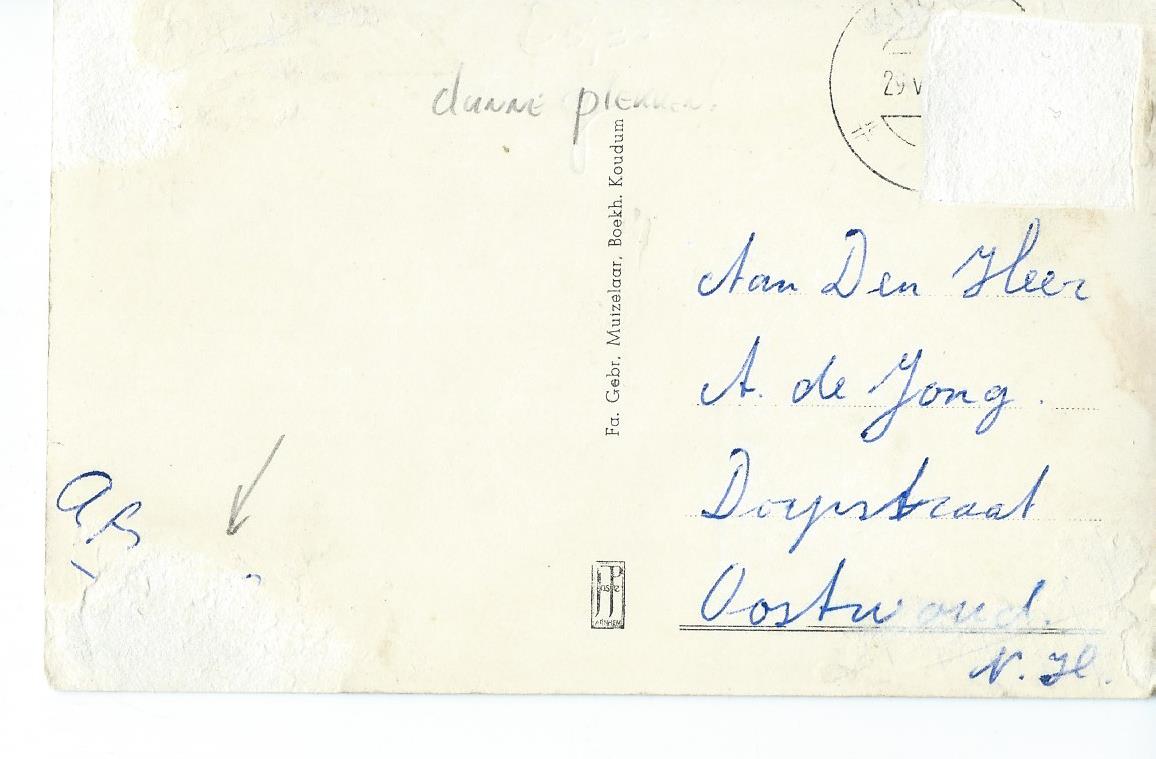 dunne plekken.
29 V
Fa. Gebr. Muizelaar, Boekh. Koudum
Aan Den Heer
A. de Jong.
Dorpstraat
Oostwoud.
N. H.
JP
ARNHEM